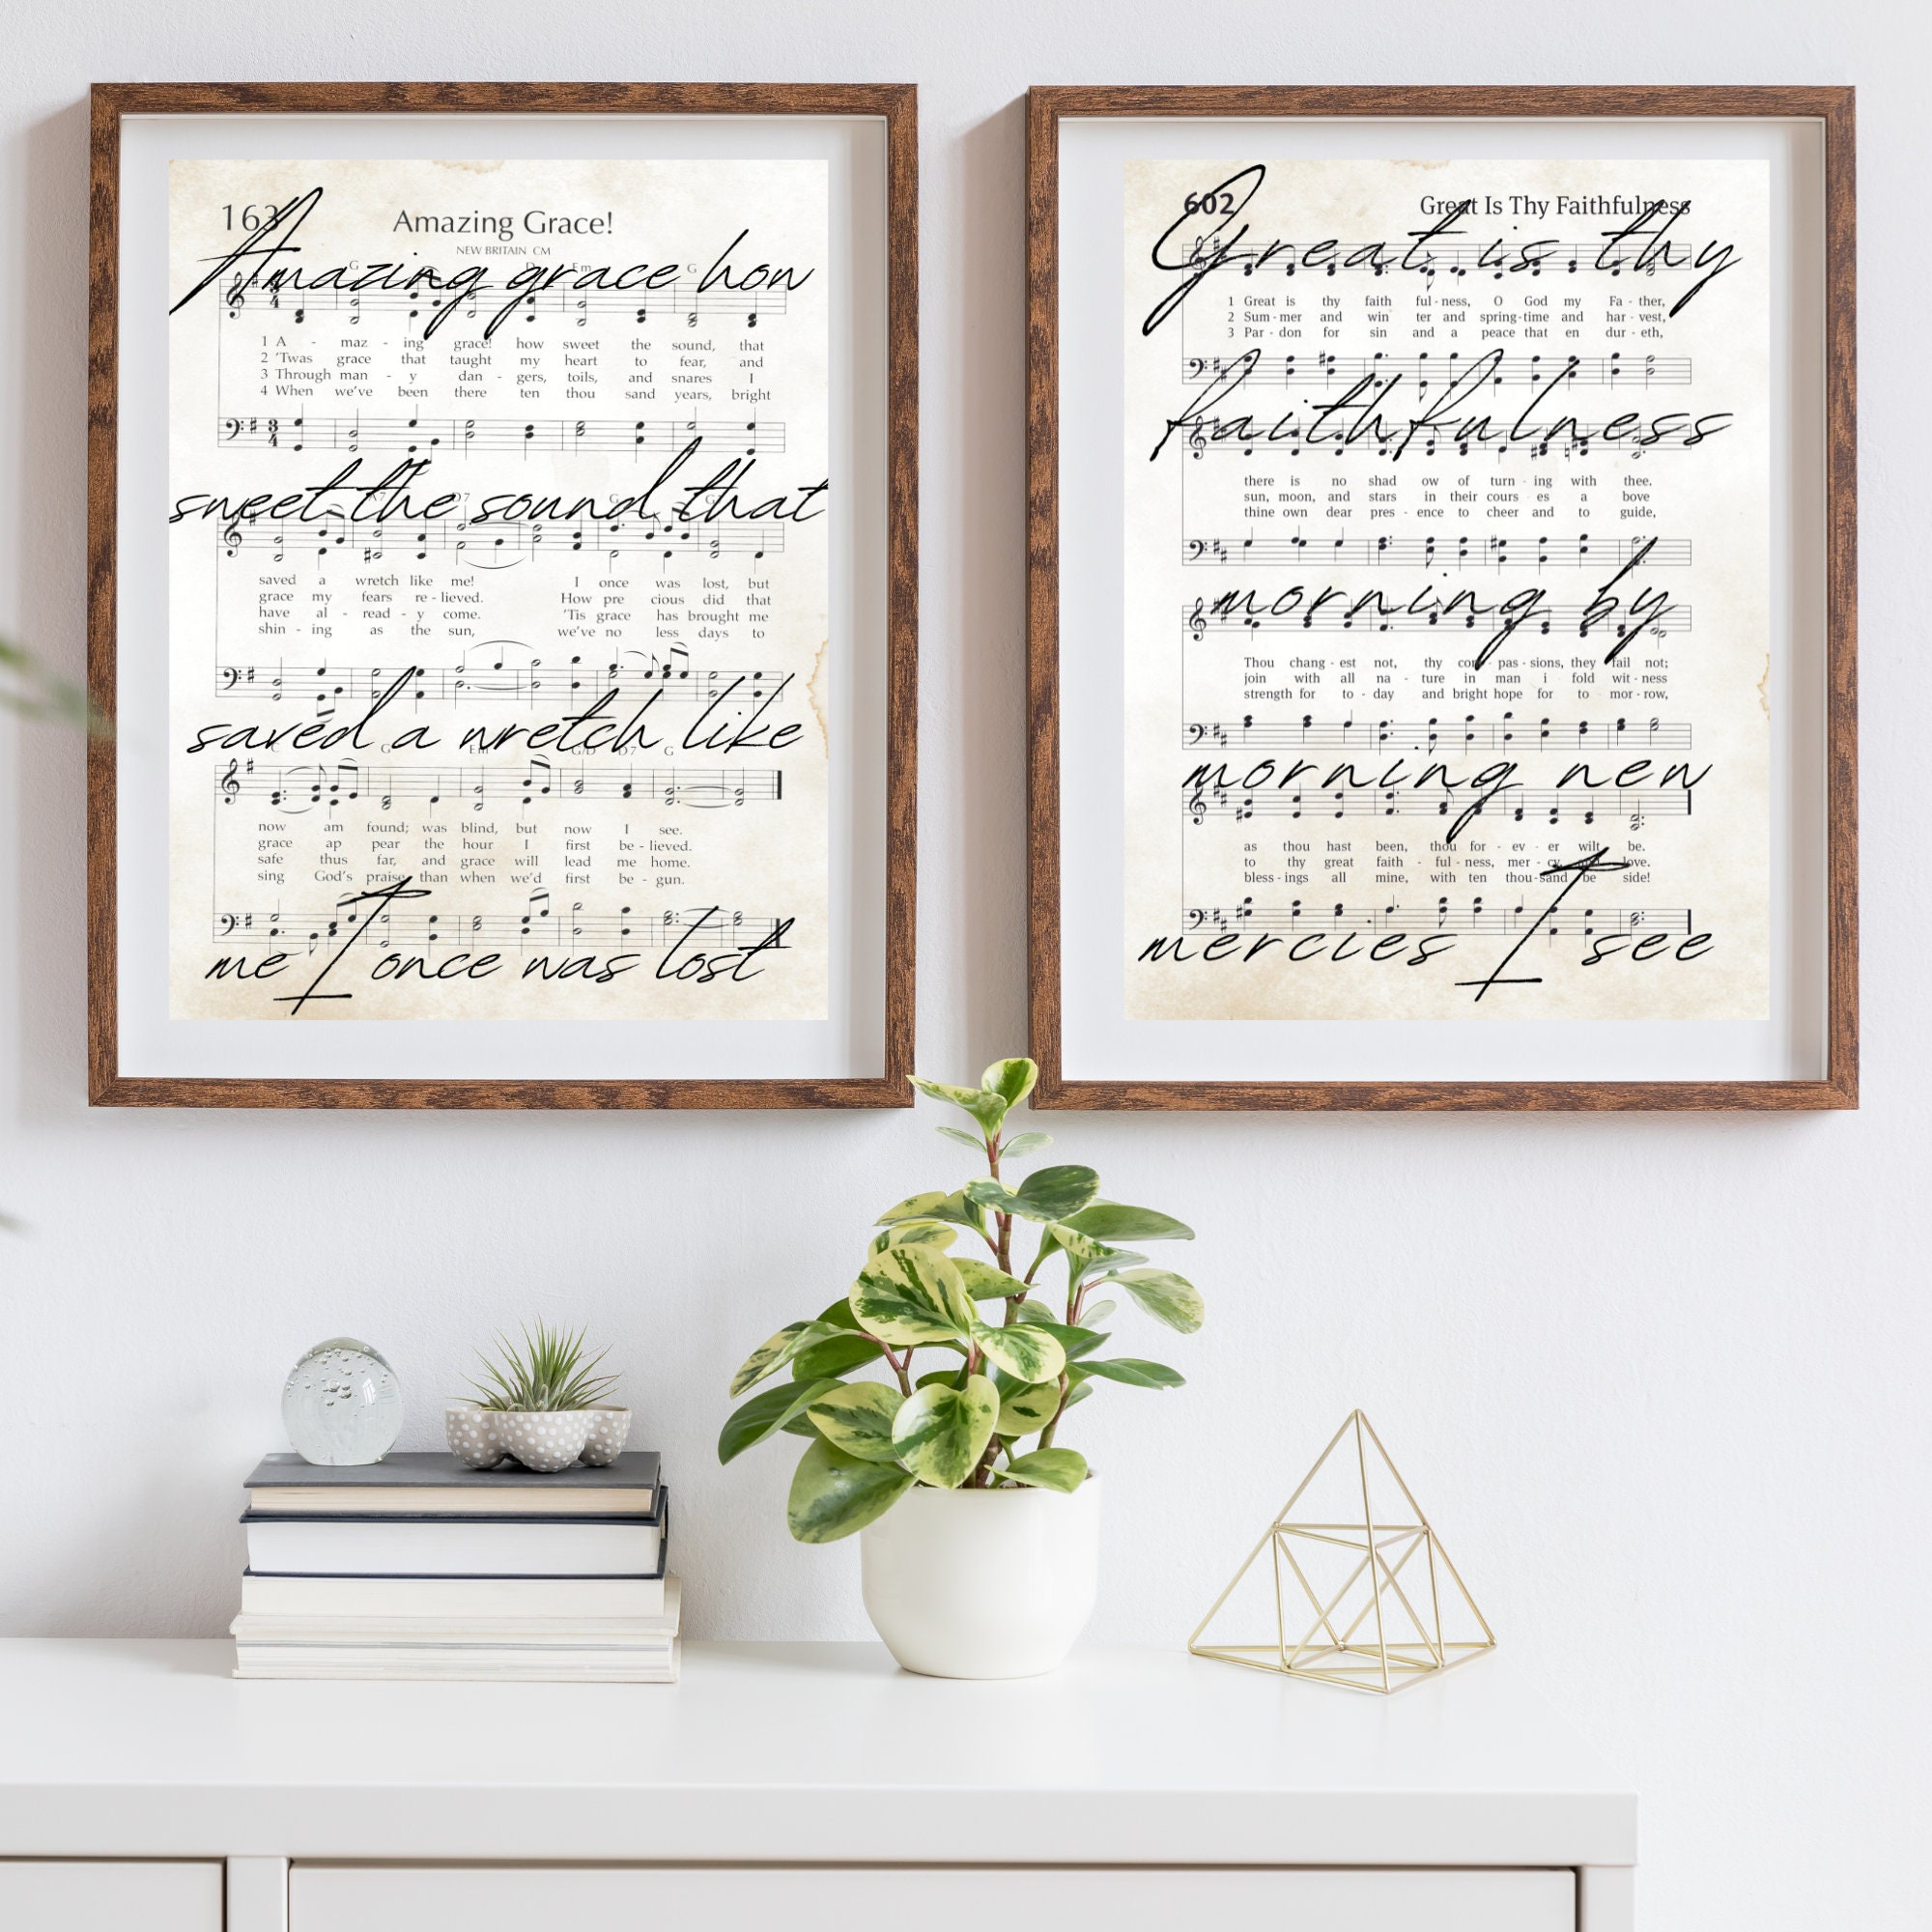 163
Amazing Grace!
NEW BRITAIN CM
Amazing grace how
1 A - maz - ing grace! how sweet the sound, that
2 'Twas grace that taught my heart to fear, and
3 Through man - y dan - gers, toils, and snares I
4 When we've been there ten thou sand years, bright
sweet the sound that
saved a wretch like me! I once was lost, but
grace my fears re - lieved. How pre cious did that
have al - read - y come. 'Tis grace has brought me
shin - ing as the sun, we've no less days to
saved a wretch like
now am found; was blind, but now I see.
grace ap pear the hour I first be - lieved.
safe thus far, and grace will lead me home.
sing God's praise than when we'd first be - gun.
me I once was lost
602
Great Is Thy Faithfulness
Great is thy
1 Great is thy faith ful - ness, O God my Fa - ther,
2 Sum - mer and win ter and spring - time and har - vest,
3 Par - don for sin and a peace that en dur - eth,
faithfulness
there is no shad ow of turn - ing with thee.
sun, moon, and stars in their cours es a bove
thine own dear pres - ence to cheer and to guide,
morning by
Thou chang - est not, thy com - pas - sions, they fail not;
join with all na - ture in man i fold wit - ness
strength for to - day and bright hope for to mor - row,
morning new
as thou hast been, thou for - ev - er wilt be.
to thy great faith - ful - ness, mer - cy, and love.
bless - ings all mine, with ten thou - sand be side!
mercies I see